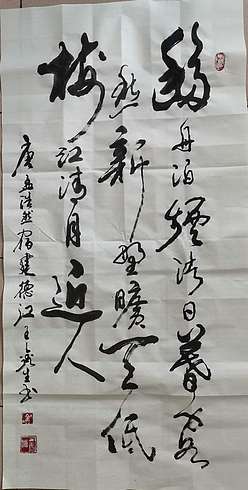 移舟泊煙渚日暮客
愁新野曠天低
樹江清月近人
唐孟浩然宿建德江王生书